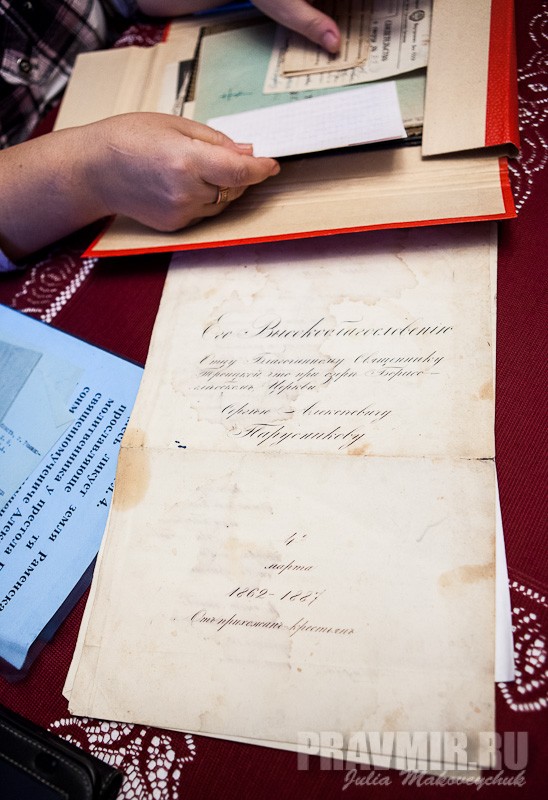 Его Высокоблагословенію
Отцу Благочинному Священнику
Троицкой что при озерѣ Борисо-
глѣбской Церкви
Сергѣю Алексѣевичу
Парусникову
4го
марта
1862-1887
Отъ прихожанъ-крестьянъ
4.
ликует земля Раменска
прославляюще тя
молитвенника у престола
священномучениче Алек
PRAVMIR.RU
Julia Makoveychuk